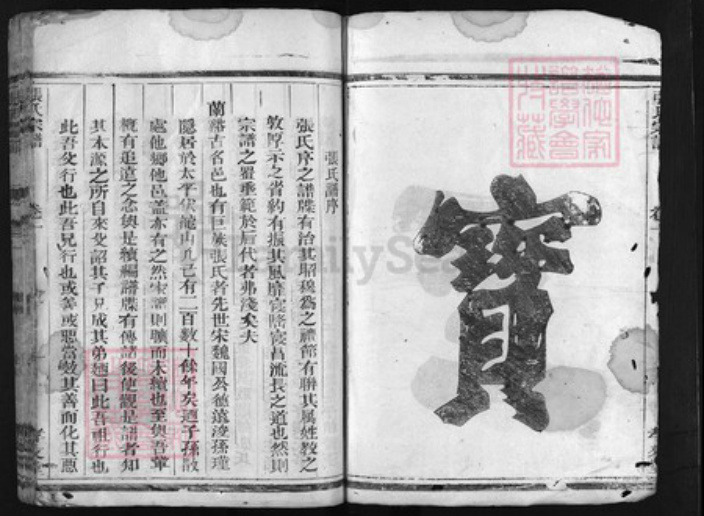 寶
張氏宗譜
卷一
張氏譜序
張氏序之譜牒有治其昭穆為之禮節有聯其屬姓教之
敦厚示之者約有振其風靡寢陵寢昌流長之道也然則
宗譜之置垂範於后代者弗淺矣夫
蘭谿古名邑也有巨族張氏者先世宋魏國公德遠浚孫瑾
隱居於太平伏龍山几己有二百數十餘年矣廼子孫散
處他鄉他邑蓋亦有之然宋譜則曠而未續也至與吾輩
概有追遠之念與是續編譜牒有傳諸後使觀是譜者知
其本源之所自來父詔其子兄成其弟廼曰此吾祖行也
此吾父行也此吾兄行也或善或惡當效其善而化其惡
張氏宗譜
卷一
孝友堂
FamilySearch